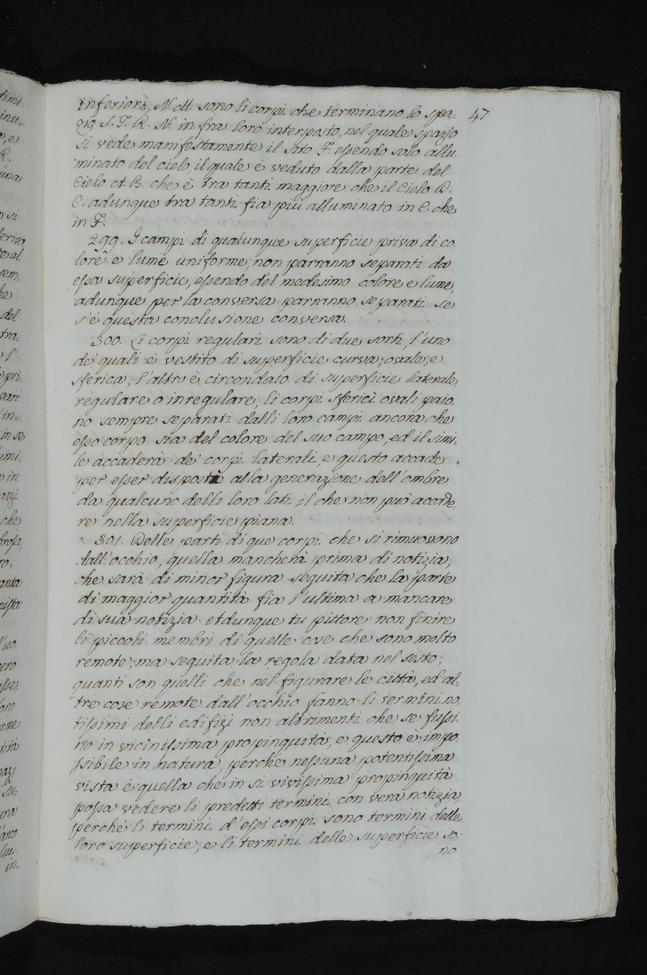 inferiori, M. M. sono li corpi che terminano lo spa- 47
zio S. F. R. M. in fra loro interposto, nel quale spazio
si vede manifestamente il sito F. essendo solo allu-
minato del cielo, il quale è veduto dalla parte del
Cielo A. B. che è tra tanti maggiore che il Cielo B.
C. adunque tra tanti fia più alluminato in E. che
in F.
299. I campi di qualunque superficie priva di co
lore e lume uniforme, non parranno separati da
essa superficie, essendo del medesimo colore e lume,
adunque per la conversa parranno separati se
s'è questa conclusione conversa.
300. Li corpi regulari sono di due sorti, l'uno
de' quali è vestito di superficie curva, ovale, e
sferica, l'altro è circondato di superficie laterale,
regulare o inregulare, li corpi sferici ovali paio-
no sempre separati dalli loro campi ancora che
esso corpo sia del colore del suo campo, ed il simi-
le accaderà de' corpi laterali, e questo accade
per esser disposti alla generazione dell'ombre
da qualcuno delli loro lati, il che non può accade-
re nella superficie piana.
301. Delle parti di que corpi, che si rimuovono
dall'occhio, quella mancherà prima di notizia,
che sarà di minor figura, seguita che la parte
di maggior quantità fia l'ultima a mancare
di sua notizia, adunque tu pittore non finire
li piccoli membri di quelle cose che sono molto
remote, ma seguita la regola data nel sesto;
quanti son quelli che nel figurare le città, ed al-
tre cose remote dall'occhio fanno li termini no
tissimi delli edifizi non altrimenti che se fussi-
no in vicinissima propinquità, e questo è impo
ssibile in natura, perchè nessuna potentissima
vista è quella che in si vivissima propinquità
possa vedere li predetti termini con vera notizia,
perchè li termini d'essi corpi sono termini delle
loro superficie, e li termini delle superficie so-
no